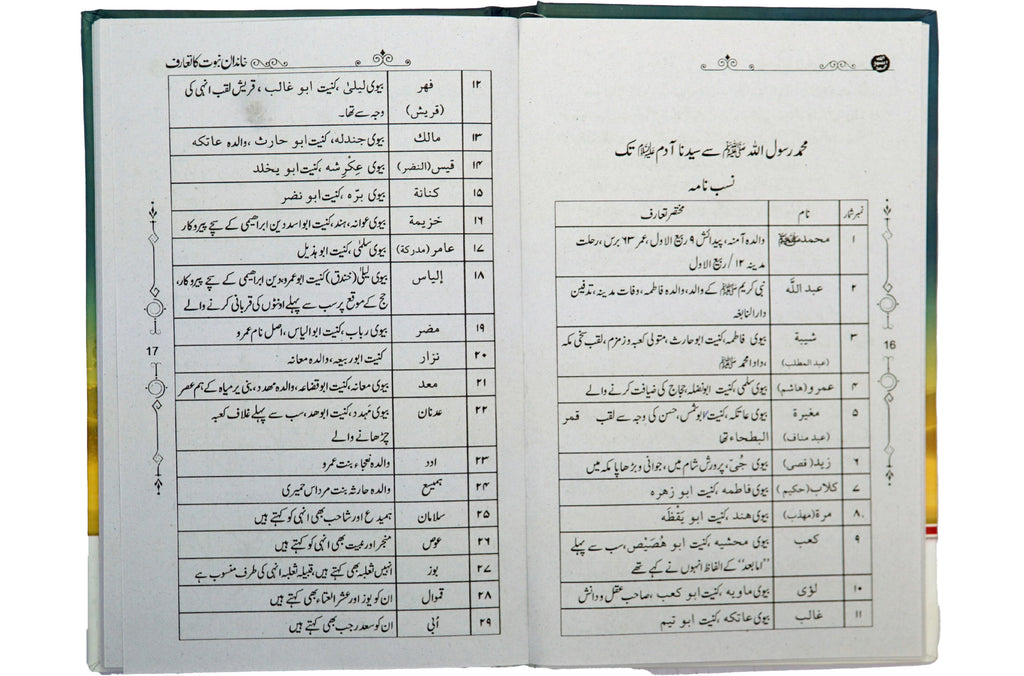 محمد رسول اللہ ﷺ سے سیدنا آدم علیہ السلام تک
نسب نامہ
نمبر شمار نام مختصر تعارف
۱ محمد ﷺ والدہ آمنہ، پیدائش ۹ ربیع الاول، عمر ۶۳ برس، رحلت
مدینہ ۱۲/ ربیع الاول
۲ عبد اللّٰہ نبی کریم ﷺ کے والد، والدہ فاطمہ، وفات مدینہ، تدفین
دار النابغہ
۳ شیبة بیوی فاطمہ، کنیت ابو حارث، متولی کعبہ و زمزم، لقب سخی مکہ
(عبد المطلب) ، دادا محمد ﷺ
۴ عمرو (ھاشم) بیوی سلمی، کنیت ابو نضلہ، حجاج کی ضیافت کرنے والے
۵ مغیرة بیوی عاتکہ، کنیت ابو شمس، حسن کی وجہ سے لقب قمر
(عبد مناف) البطحاء تھا
۶ زید (قصی) بیوی حُبّی، پرورش شام میں، جوانی و بڑھاپا مکہ میں
۷ کلاب (حکیم) بیوی فاطمه، کنیت ابو زھرہ
۸ مرة (مهذب) بیوی ھند، کنیت ابو یَقْظَه
۹ کعب بیوی محشیه، کنیت ابو ھُصَیْص، سب سے پہلے
”اما بعد“ کے الفاظ انہوں نے کہے تھے
۱۰ لؤی بیوی ماویه، کنیت ابو کعب، صاحب عقل و دانش
۱۱ غالب بیوی عاتکه، کنیت ابو تیم
16
خاندان نبوت کا تعارف
۱۲ فهر بیوی لیلیٰ، کنیت ابو غالب، قریش لقب انہی کی
(قریش) وجہ سے تھا۔
۱۳ مالك بیوی جندله، کنیت ابو حارث، والدہ عاتکه
۱۴ قیس (النضر) بیوی عِکْرِشه، کنیت ابو یخلد
۱۵ کنانة بیوی برّہ، کنیت ابو نضر
۱۶ خزیمة بیوی عوانہ، ہند، کنیت ابو اسد دین ابراھیمی کے سچے پیروکار
۱۷ عامر (مدرکة) بیوی سلمٰی، کنیت ابو ہذیل
۱۸ إلیاس بیوی لیلیٰ (خندق) کنیت ابو عمرو، دین ابراھیمی کے سچے پیروکار،
حج کے موقع پر سب سے پہلے اونٹوں کی قربانی کرنے والے
۱۹ مضر بیوی رباب، کنیت ابو الیاس، اصل نام عمرو
۲۰ نزار کنیت ابو ربیعہ، والدہ معانہ
۲۱ معد بیوی معانہ، کنیت ابو قضاعہ، والدہ مھدد، بنی یرمیاہ کے ہم عصر
۲۲ عدنان بیوی مَہدد، کنیت ابو معد، سب سے پہلے غلاف کعبہ
چڑھانے والے
۲۳ ادد والدہ نعجاء بنت عمرو
۲۴ ہمیسع والدہ حارثہ بنت مرداس حمیری
۲۵ سلامان ہمیدع اور شاحب بھی انہی کو کہتے ہیں
۲۶ عوص منجر اور عبیت بھی انہی کو کہتے ہیں
۲۷ بوز انہیں ثعلبہ بھی کہتے ہیں، قبیلہ ثعلبہ انہی کی طرف منسوب ہے
۲۸ قموال ان کو یوز اور عشر العتاء بھی کہتے ہیں
۲۹ اُبی ان کو سعد رجب بھی کہتے ہیں
17